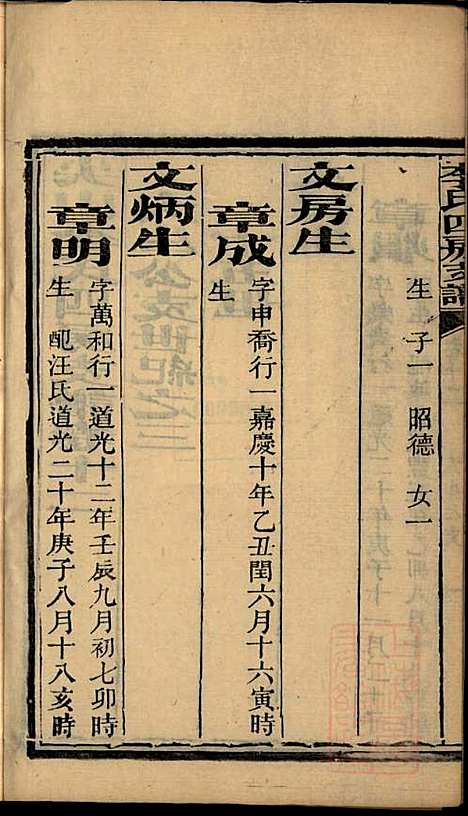 李氏四房支譜
生 子一 昭德 女一
文房生
章成 字申喬行一嘉慶十年乙丑閏六月十六寅時
生
文炳生
章明 字萬和行一道光十二年壬辰九月初七卯時
生 配汪氏道光二十年庚子八月十八亥時